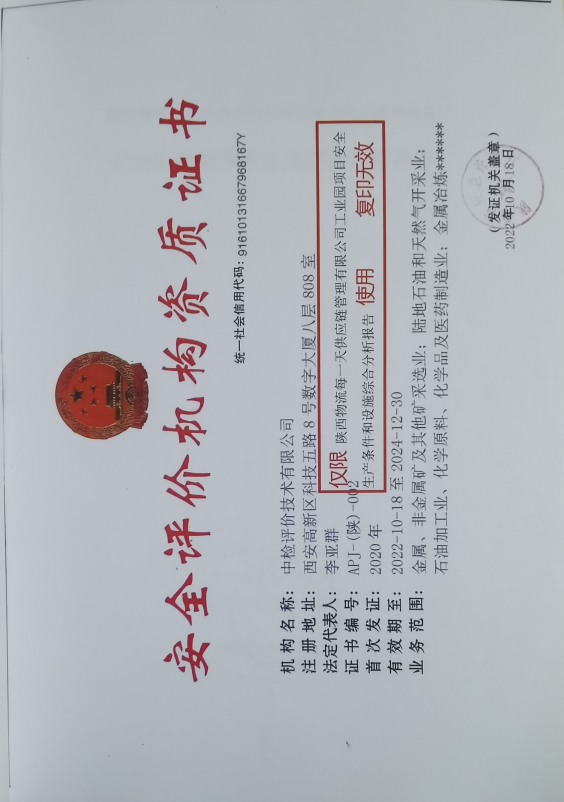 安全评价机构资质证书
统一社会信用代码：91610131667968167Y
机构名称：中检评价技术有限公司
注册地址：西安高新区科技五路8号数字大厦八层808室
法定代表人：李亚群
证书编号：APJ-(陕)-002
首次发证：2020年
有效期至：2022-10-18至2024-12-30
业务范围：金属、非金属矿及其他矿采选业；陆地石油和天然气开采业；
石油加工业、化学原料、化学品及医药制造业；金属冶炼******
仅限 陕西物流每一天供应链管理有限公司工业园项目安全
生产条件和设施综合分析报告 使用 复印无效
（发证机关盖章）
2022年10月18日